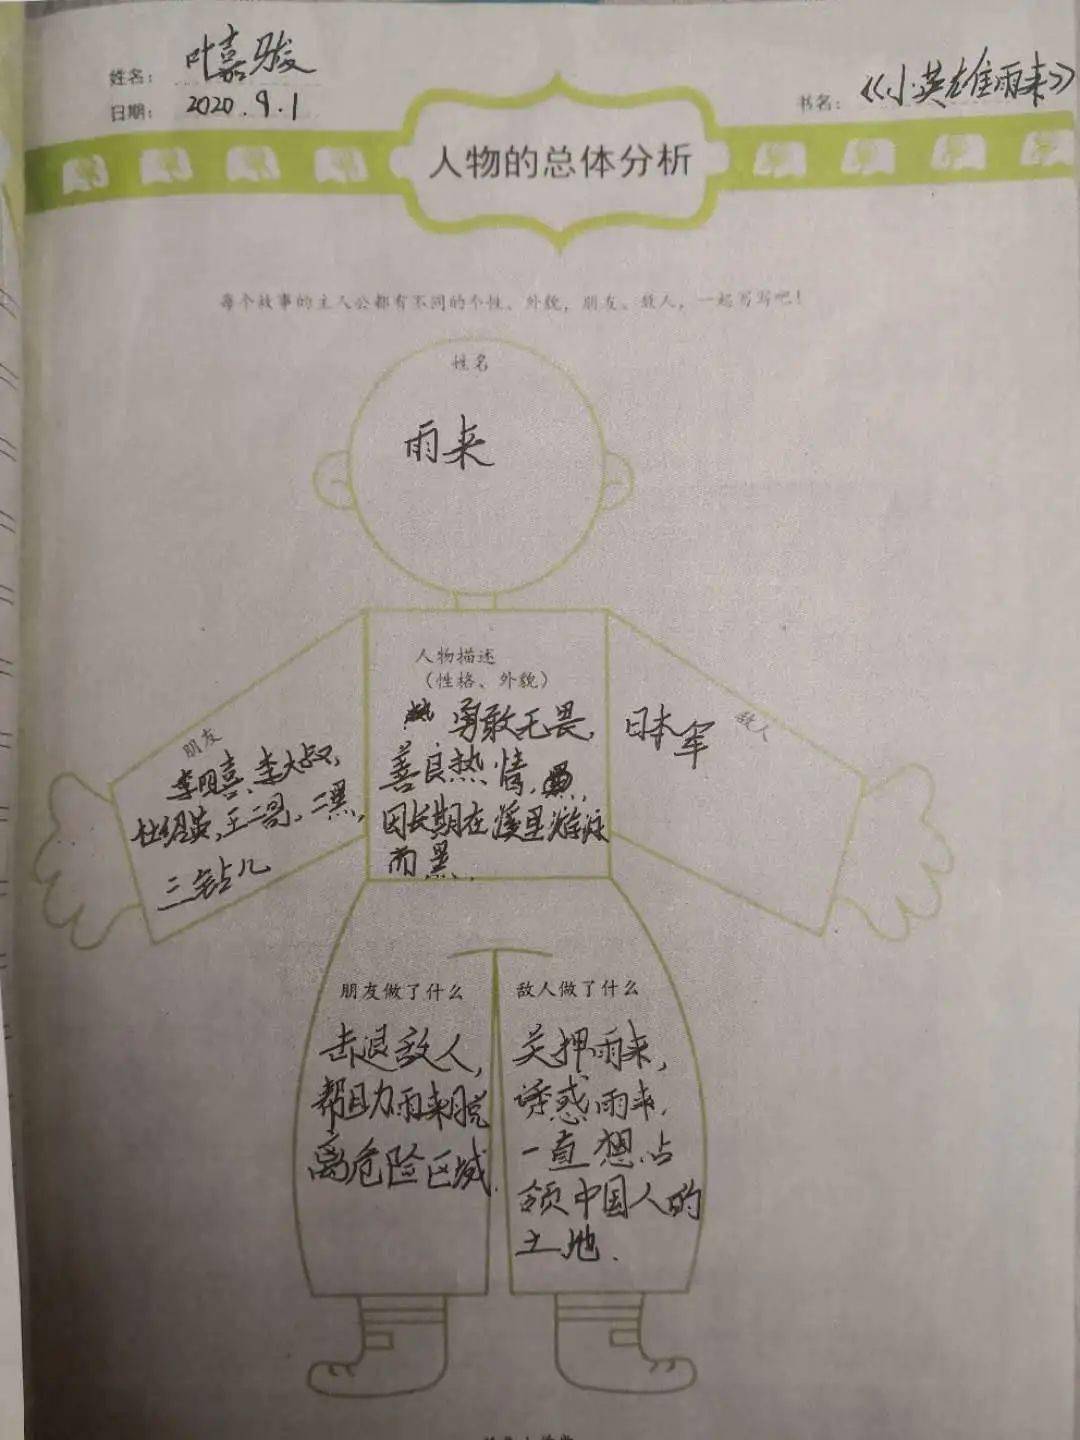 姓名： 叶嘉骏
日期： 2020.9.1
书名： 《小英雄雨来》
人物的总体分析
每个故事的主人公都有不同的个性、外貌，朋友、敌人，一起写写吧！
姓名
雨来
人物描述
（性格、外貌）
勇敢无畏，
善良热情，
因长期在溪里游泳
而黑.
朋友
李明喜、李大叔，
杜绍英，王二哥，二黑，
三钻儿
敌人
日本军
朋友做了什么
击退敌人，
帮助雨来脱
离危险区域.
敌人做了什么
关押雨来，
诱惑雨来.
一直想占
领中国人的
土地.